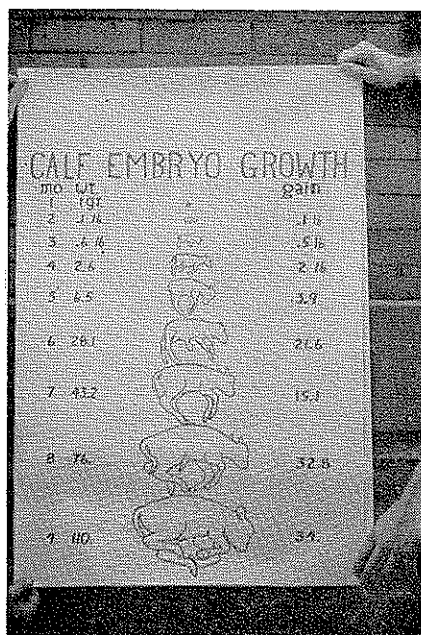 CALF EMBRYO GROWTH
mo wt gain
1 1gr
2 .1 lb .1 lb
3 .6 lb .5 lb
4 2.6 2 lb
5 6.5 3.9
6 28.1 21.6
7 43.2 15.1
8 76. 32.8
9 110 34